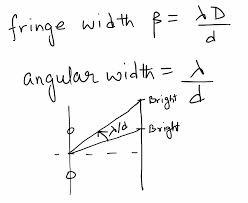 fringe width β = λD/d
angular width = λ/d
Bright
λ/d
Bright